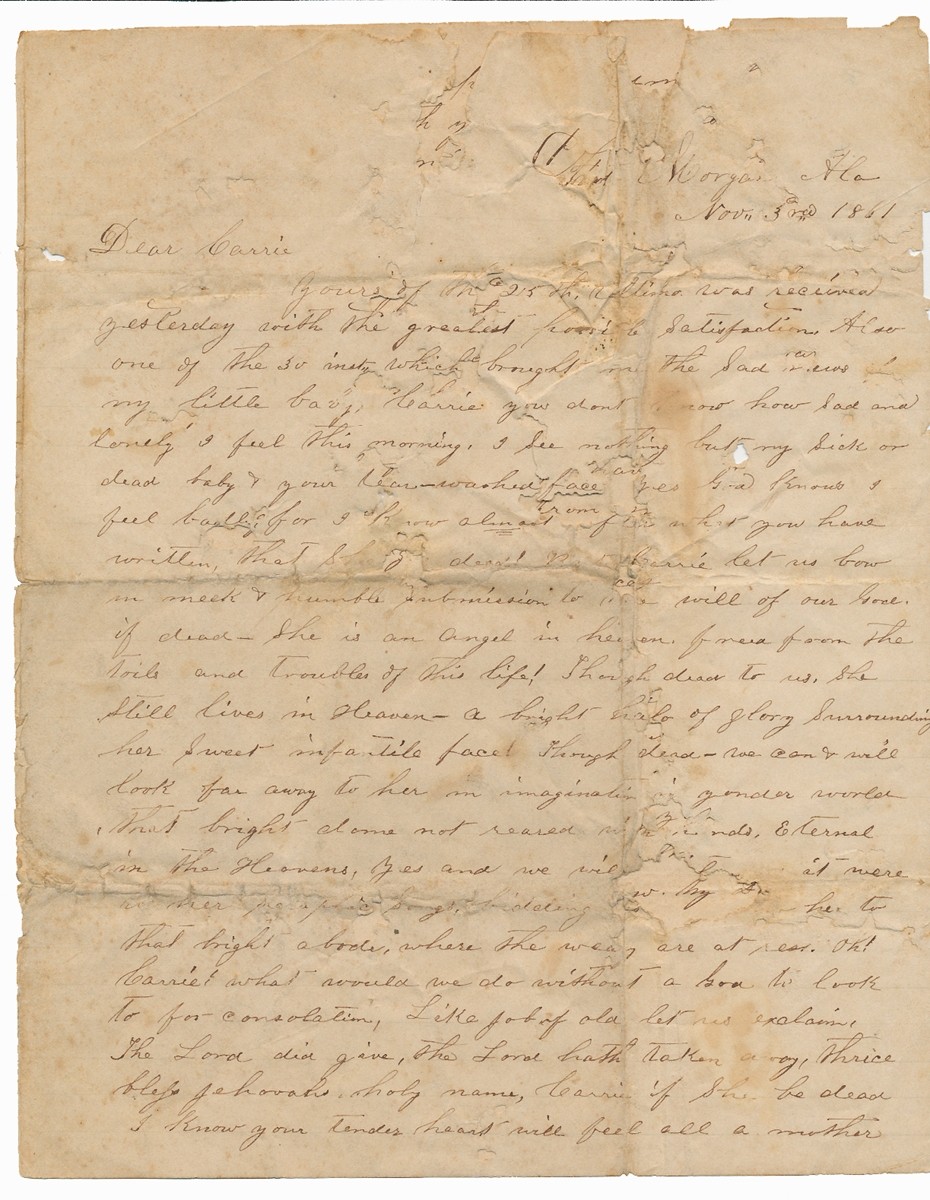 Fort Morgan Ala
Nov,, 3rd 1861
Dear Carrie
Yours of the 25th, Ultimo. was received
yesterday with the greatest possible Satisfaction. Also
one of the 30 inst, which brought me the Sad news
my little baby, Carrie you dont know how Sad and
lonely I feel this morning. I See nothing but my Sick or
dead baby & your tear-washed face yes God knows I
feel badly, for I know almost after what you have
written, that She is dead! Carrie let us bow
in meek & humble Submission to the will of our God.
if dead — She is an Angel in heaven. freed from the
toils and troubles of this life! Though dead to us. She
Still lives in Heaven — a bright halo of glory Surrounding
her Sweet infantile face! Though dead — we can & will
look far away to her in imagination yonder world
that bright dome not reared with hands, Eternal
in the Heavens, Yes and we will it were
her Songs, bidding her to
that bright abode, where the weary are at rest. Oh!
Carrie! what would we do without a God to look
to for consolation, Like Job of old let us exclaim,
The Lord did give, the Lord hath taken away, thrice
bless Jehovahs holy name, Carrie if She be dead
I know your tender heart will feel all a mother